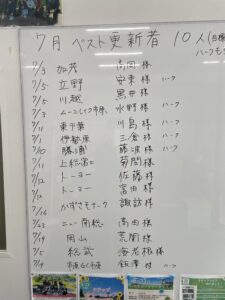 7月 ベスト更新者 10人(目標
ハーフも
7/3 加茂 高岡 様
7/5 立野 安東 様 ハーフ
7/5 川越 黒井 様
7/3 ムーンレイク市原 水野 様 ハーフ
7/11 東千葉 川島 様 ハーフ
7/1 伊勢原 三倉 様 ハーフ
7/10 勝浦 藤波 様 ハーフ
7/11 上総富士 菊間 様
7/12 トーヨー 佐藤 様
7/12 トーヨー 富田 様
7/16 かずさモナーク 諏訪 様
7/23 ニュー南総 高田 様
7/19 岡山 荒関 様
7/5 総武 海老根 様
7/9 市原 飯澤 様 ハーフ